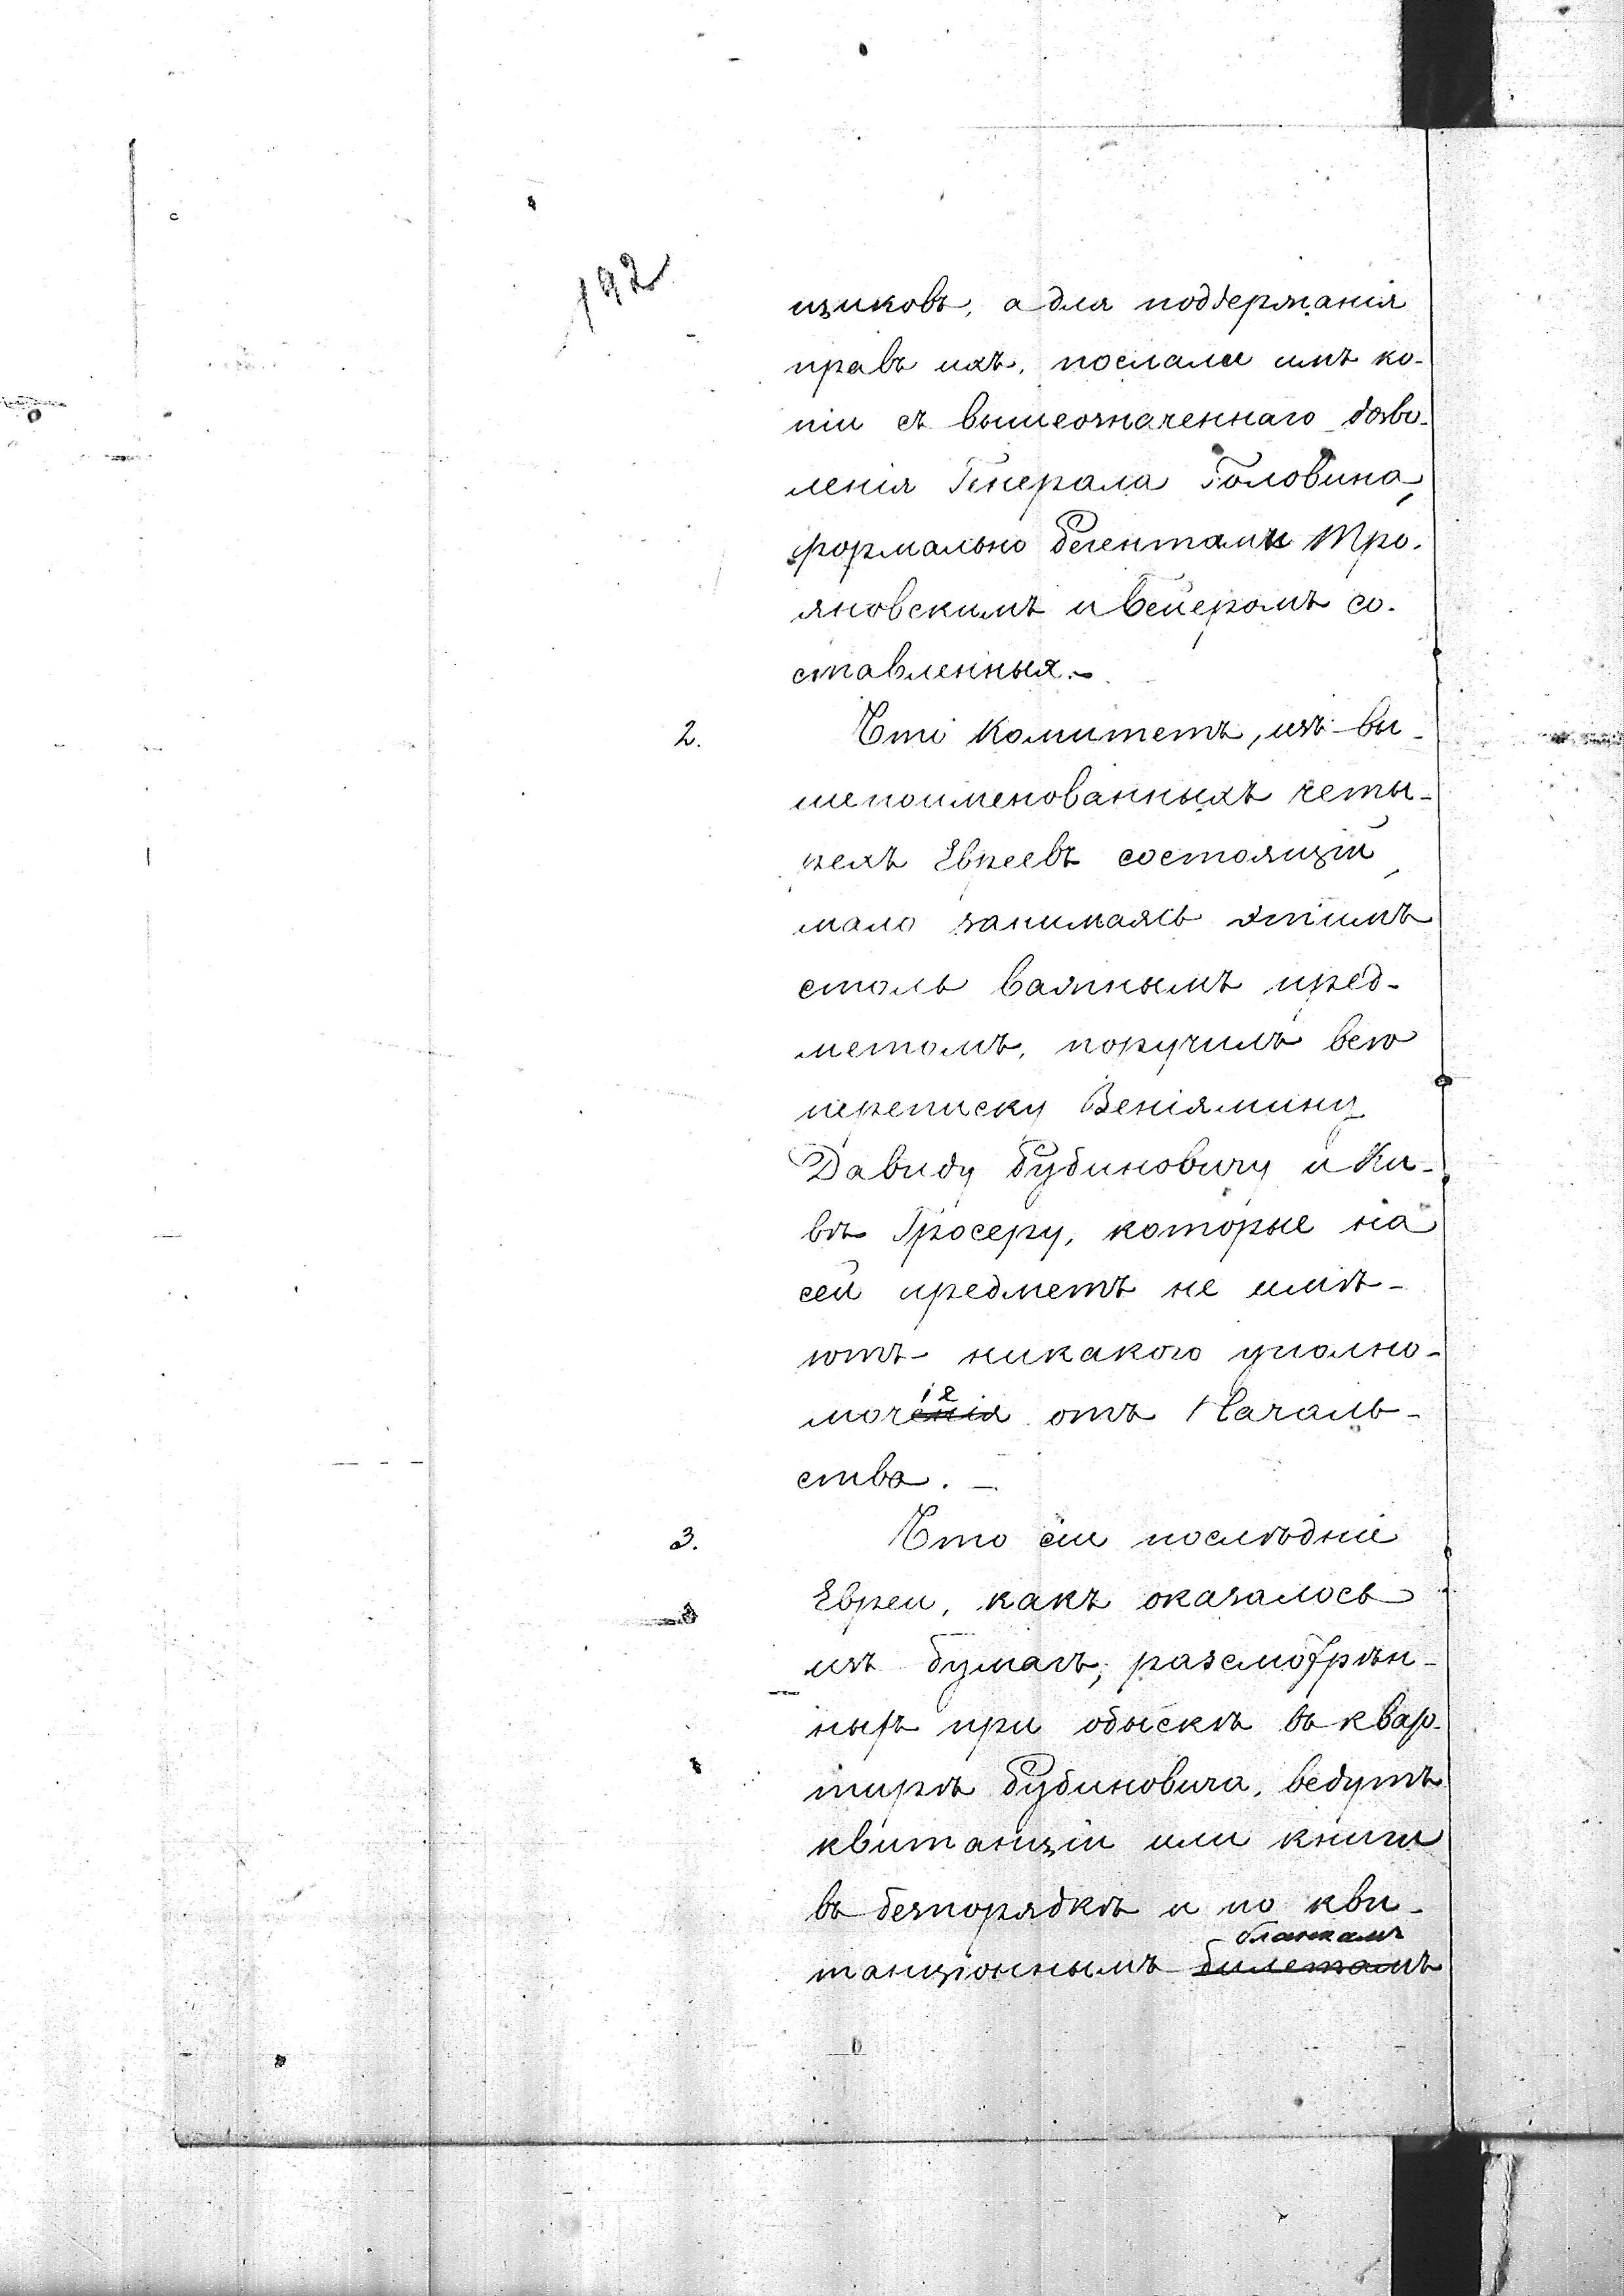 192
щиковъ, а для поддержанія
правъ ихъ, послали имъ ко-
піи съ вышеозначеннаго дозво-
ленія Генерала Головина,
формально Регентами Тро-
яновскимъ и Вейеромъ со-
ставленныя. —
2. Что Комитетъ, изъ вы-
шепоименованныхъ четы-
рехъ Евреевъ состоящій,
мало занимаясь этимъ
столь важнымъ пред-
метомъ, поручилъ всю
переписку Веніямину
Давиду Рубиновичу и Ки-
вѣ Гросеру, которые на
сей предметъ не имѣ-
ютъ никакого уполно-
моченія отъ Началь-
ства. —
3. Что сіи послѣдніе
Евреи, какъ оказалось
изъ бумагъ, разсмотрѣн-
ныхъ при обыскѣ въ квар-
тирѣ Рубиновича, ведутъ
квитанціи или книги
въ безпорядкѣ и по кви-
бланкамъ
танціоннымъ билетамъ